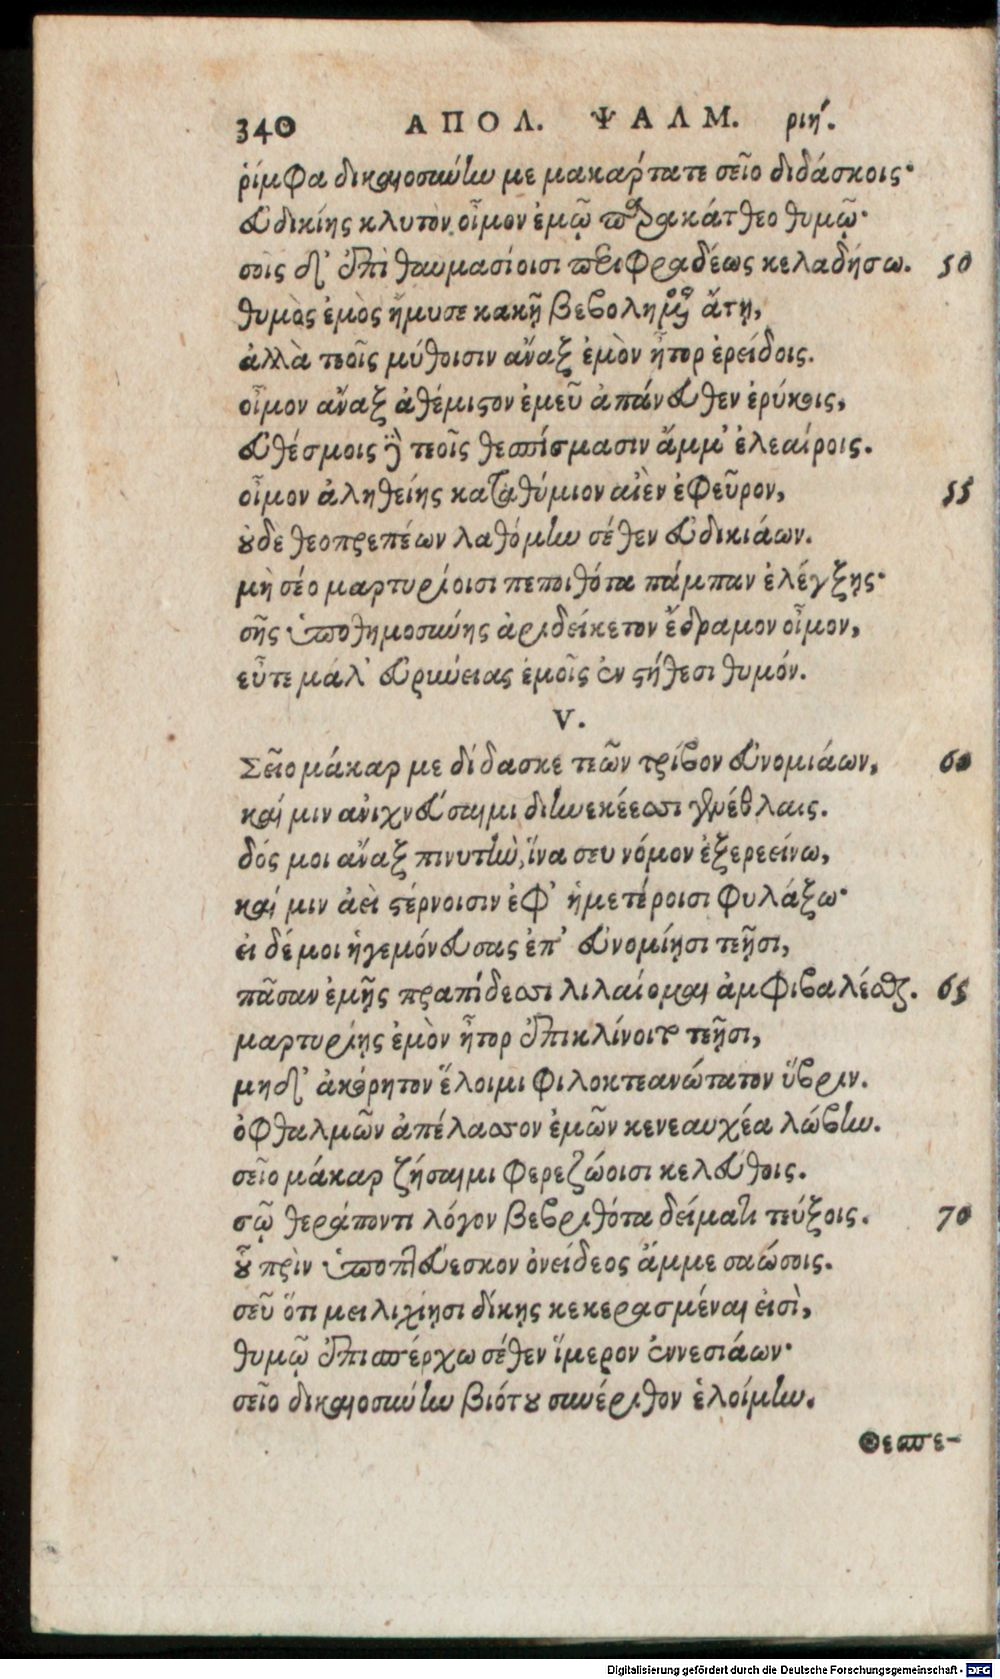 340 ΑΠΟΛ. ΨΑΛΜ. ριή.
ῥίμφα δικαιοσύνην με μακάρτατε σεῖο διδάσκοις·
εὐδικίης κλυτὸν οἶμον ἐμῷ παρακάτθεο θυμῷ·
σοῖς δ' ἐπὶ θαυμασίοισι περιφραδέως κελαδήσω. 50
θυμὸς ἐμὸς ἤμυσε κακῇ βεβολημένος ἄτῃ,
ἀλλὰ τεοῖς μύθοισιν ἄναξ ἐμὸν ἦτορ ἐρείδοις.
οἶμον ἄναξ ἀθέμιστον ἐμεῦ ἀπάνευθεν ἐρύκοις,
εὐθέσμοις δὲ τεοῖς θεσπίσμασιν ἄμμ' ἐλεαίροις.
οἶμον ἀληθείης καταθύμιον αἰὲν ἐφεῦρον, 55
οὐδὲ θεοπρεπέων λαθόμην σέθεν εὐδικιάων.
μὴ σέο μαρτυρίοισι πεποιθότα πάμπαν ἐλέγξῃς·
σῆς ὑποθημοσύνης ἀριδείκετον ἔδραμον οἶμον,
εὖτε μάλ' εὐρύνειας ἐμοῖς ἐν στήθεσι θυμόν.
V.
Σεῖο μάκαρ με δίδασκε τεῶν τρίβον εὐνομιάων, 60
καί μιν ἀνιχνεύσαιμι διηνεκέεσσι γενέθλαις.
δός μοι ἄναξ πινυτὴν, ἵνα σευ νόμον ἐξερεείνω,
καί μιν ἀεὶ στέρνοισιν ἐφ' ἡμετέροισι φυλάξω·
εἰ δέ μοι ἡγεμόνευσας ἐπ' εὐνομίῃσι τεῇσι,
πᾶσαν ἐμῇς πραπίδεσσι λιλαίομαι ἀμφιβαλέσθαι. 65
μαρτυρίῃς ἐμὸν ἦτορ ἐπικλίνοιτο τεῇσι,
μηδ' ἀκόρητον ἕλοιμι φιλοκτεανώτατον ὕβριν.
ὀφθαλμῶν ἀπέλασσον ἐμῶν κενεαυχέα λώβην.
σεῖο μάκαρ ζήσαιμι φερεζώοισι κελεύθοις.
σῷ θεράποντι λόγον βεβριθότα δείματι τεύξοις. 70
οὗ πρὶν ὑποπτεύεσκον ὀνείδεος ἄμμε σαώσοις.
σεῦ ὅτι μειλιχίῃσι δίκῃς κεκερασμέναι εἰσὶ,
θυμῷ ἐπισπέρχω σέθεν ἵμερον ἐννεσιάων·
σεῖο δικαιοσύνην βιότου συνέριθον ἑλοίμην.
Θεσπε-
Digitalisierung gefördert durch die Deutsche Forschungsgemeinschaft - DFG